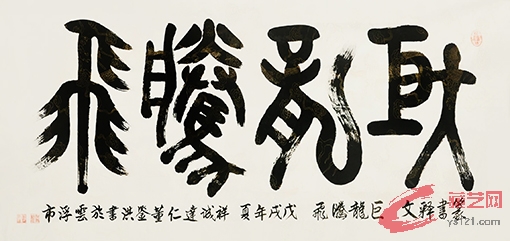 巨龍騰飛
篆書釋文 巨龍騰飛 戊戌年夏 祥誠達仁董洪書於雲浮市
艺网
ys121.com